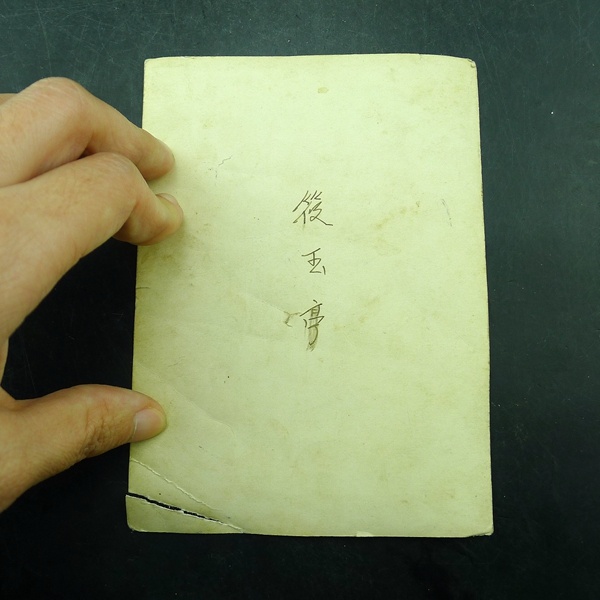 後玉亭